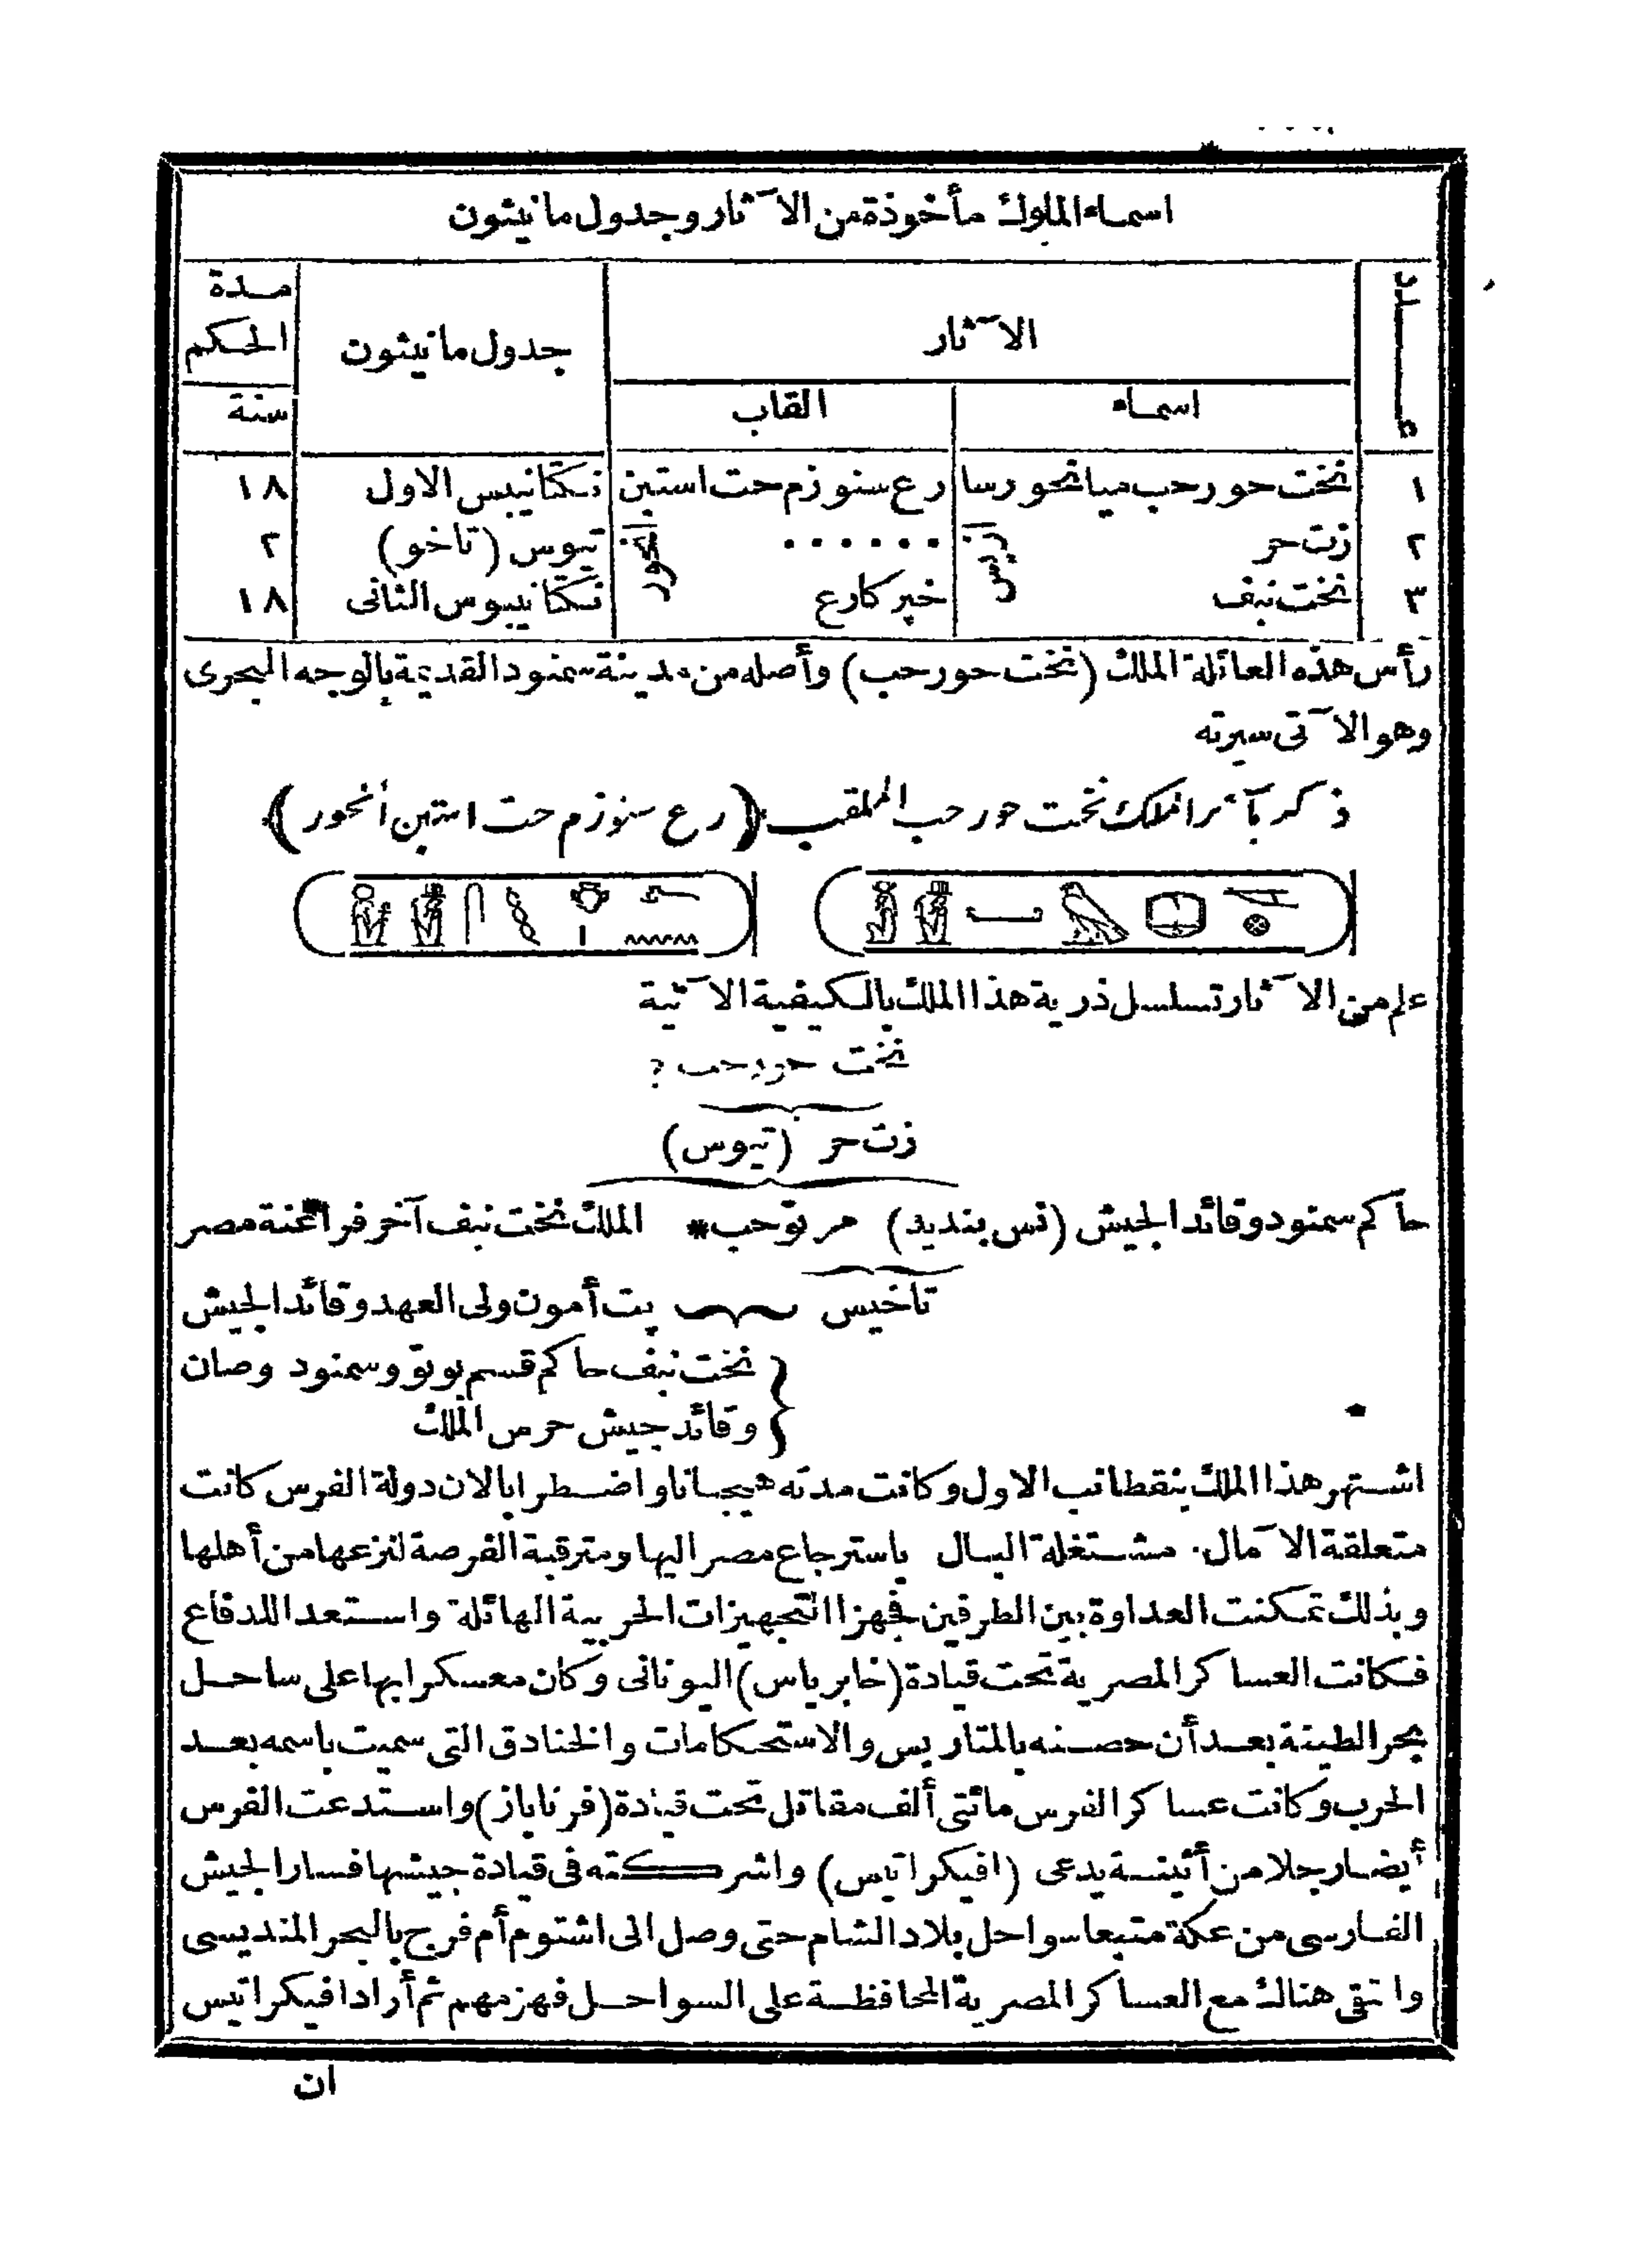 اسماء الملوك مأخوذة من الآثار وجدول مانيثون
عدد
الآثار
جدول مانيثون
مدة
الحكم
اسماء
القاب
سنة
١ نخت حور حب ميانحور سا رع سنوزم حت استين نكتانيبس الاول ١٨
٢ زت حر ...... تيوس (تاخو) ٢
٣ نخت نبف خپر كارع نكتانيبوس الثانى ١٨
رأس هذه العائلة الملك (نخت حور حب) وأصله من مدينة سمنود القديمة بالوجه البحرى
وهو الآتى سيرته
ذكر مآثر الملك نخت حور حب الملقب (رع سنوزم حت استين أنحور)
علم من الآثار تسلسل ذرية هذا الملك بالكيفية الآتية
نخت حورحب ؟
زت حر (تيوس)
حاكم سمنود وقائد الجيش (نس بنديد) مرتوحب* الملك نخت نبف آخر فراعنة مصر
تاخيس پت أمون ولى العهد وقائد الجيش
نخت نبف حاكم قسم بوتو وسمنود وصان
وقائد جيش حرس الملك
اشتهر هذا الملك بنقطانب الاول وكانت مدته هيجانا واضطرابا لان دولة الفرس كانت
متعلقة الآمال. مشتغلة البال باسترجاع مصر اليها ومترقبة الفرصة لنزعها من أهلها
وبذلك تمكنت العداوة بين الطرفين فجهزا التجهيزات الحربية الهائلة واستعدا للدفاع
فكانت العساكر المصرية تحت قيادة (خابرياس) اليونانى وكان معسكرا بها على ساحل
بحر الطينة بعد أن حصنه بالمتاريس والاستحكامات والخنادق التى سميت باسمه بعد
الحرب وكانت عساكر الفرس مائتى ألف مقاتل تحت قيادة (فرناباز) واستدعت الفرس
أيضا رجلا من أثينة يدعى (افيكراتيس) واشركته فى قيادة جيشها فسار الجيش
الفارسى من عكة متبعا سواحل بلاد الشام حتى وصل الى اشتوم أم فرج بالبحر المنديسى
والتقى هنالك مع العساكر المصرية المحافظة على السواحل فهزمهم ثم أراد افيكراتيس
ان